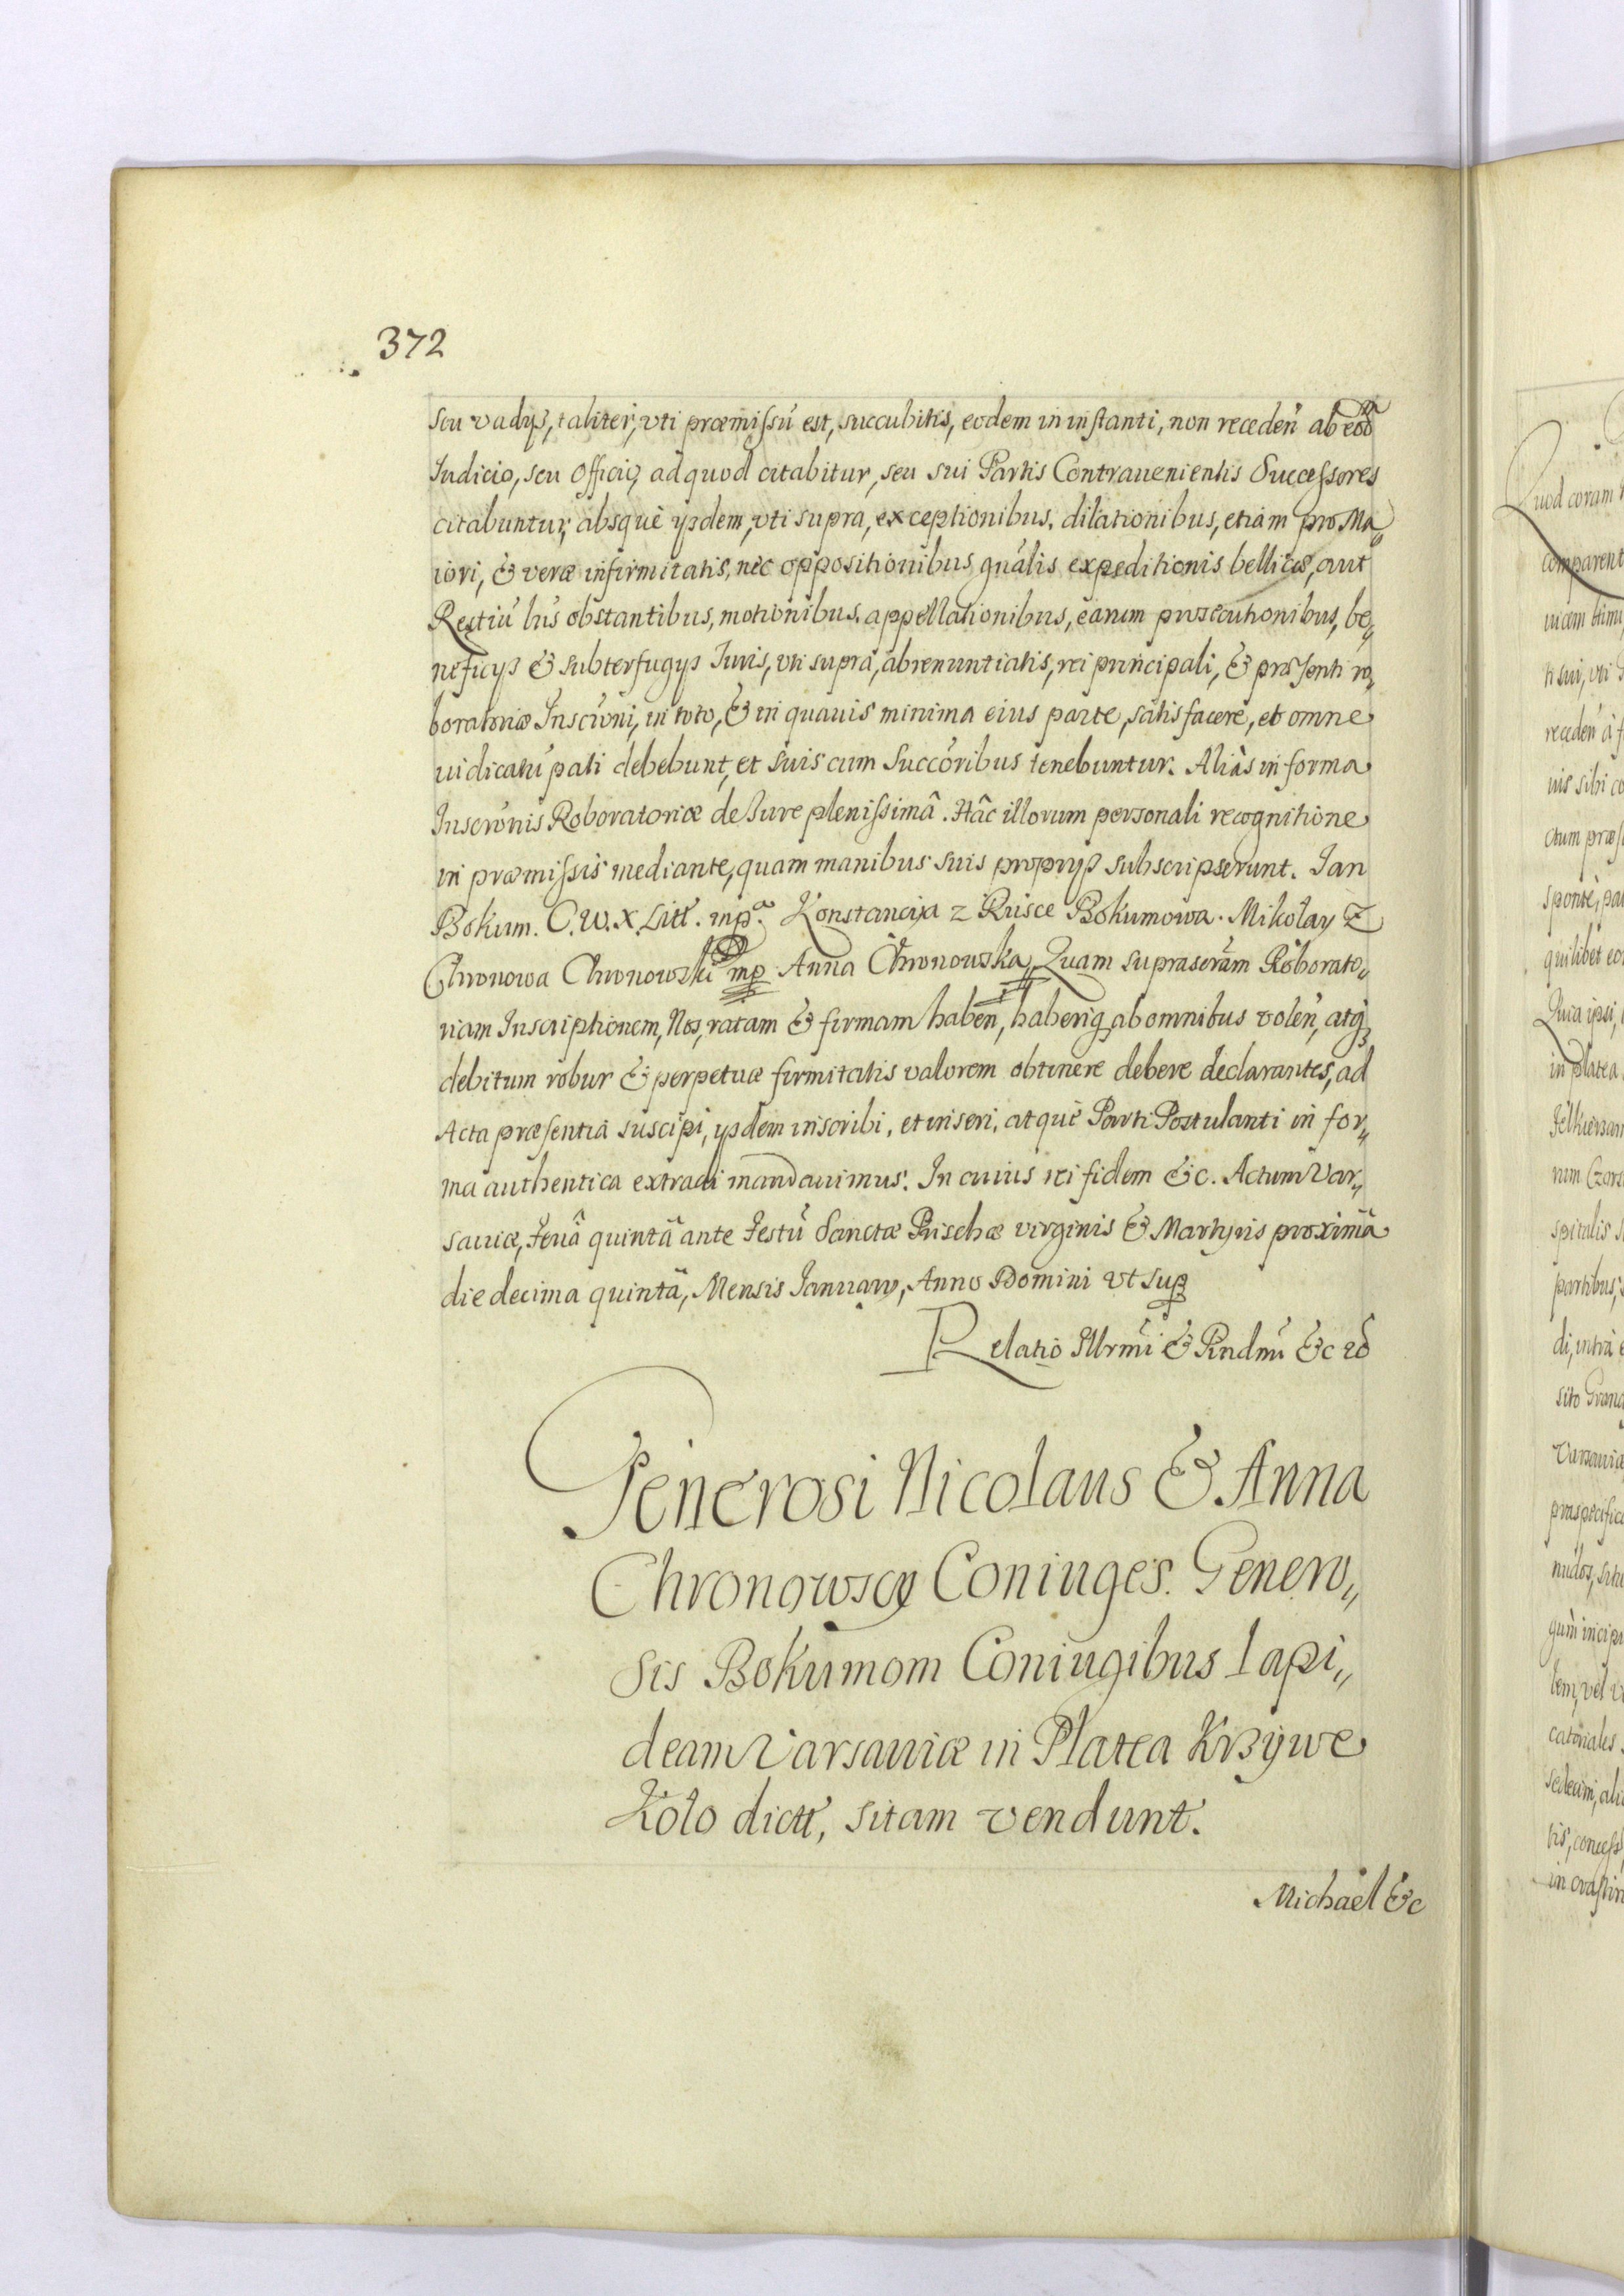 372
seu vadys, taliter, vti præmissũ est, succubitis, eodem in instanti, non receden̄ ab eod
Iudicio, seu Officio, ad quod citabitur, seu sui Partis Contrauenientis Successores
citabuntur, absque ysdem, vti supra, exceptionibus, dilationibus, etiam pro Ma„
iori, & veræ infirmitatis, nec oppositionibus gnãlis expeditionis bellicæ, aut
bus obstantibus, motionibus, appellationibus, earum prosecutionibus, be„
neficys & subterfugys Iuris, vti supra, abrenuntiatis, rei principali, & præsenti ro„
boratoriæ Inscrōni, in toto, & in quauis minima eius parte, satisfacere, et omne
iudicatũ pati debebunt, et suis cum Succōribus tenebuntur. Aliàs in forma
Inscrōnis Roboratoriæ de Iure plenissimâ. Hâc illorum personali recognitione
in præmissis mediante, quam manibus suis proprys subscripserunt. Ian
Bokum. C. W. X. Litt. mpa Konstancija z Bokumowa. Mikolay Z
Chronowa Chronowski mp Anna Chronowska, Quam suprascrãm Roborato„
riam Inscriptionem, Nos, ratam & firmam haben̄, haberiq; ab omnibus volen̄, atq;
debitum robur & perpetuæ firmitatis valorem obtinere debere declarantes, ad
Acta præsentia suscipi, ysdem inscribi, et inseri, atque Parti Postulanti in for„
ma authentica extradi mandauimus. In cuius rei fidem &c. Actum Var„
sauiæ, feriâ quintâ ante festũ Sanctæ Prischæ virginis & Martyris proximâ
die decima quintâ, Mensis Ianuary, Anno Domini vt sup
Relatio Illrmi & Rndmi &c
Generosi Nicolaus & Anna
Chronowscy Coniuges. Genero„
sis Bokumom Coniugibus lapi„
deam Varsauiæ in Platea Krzywe
Koło dictt, sitam vendunt.
Michael &c
Quod coram
comparent
ti sui, vti
receden̄ à
uis sibi
ctum præs
sponte
quilibet
Quia ipsi,
in platea
rum
spitalis
partibus,
di, intra
sito
Varsauiæ
præspecifica
nudos,
lem, vel
catoriales
in crastin